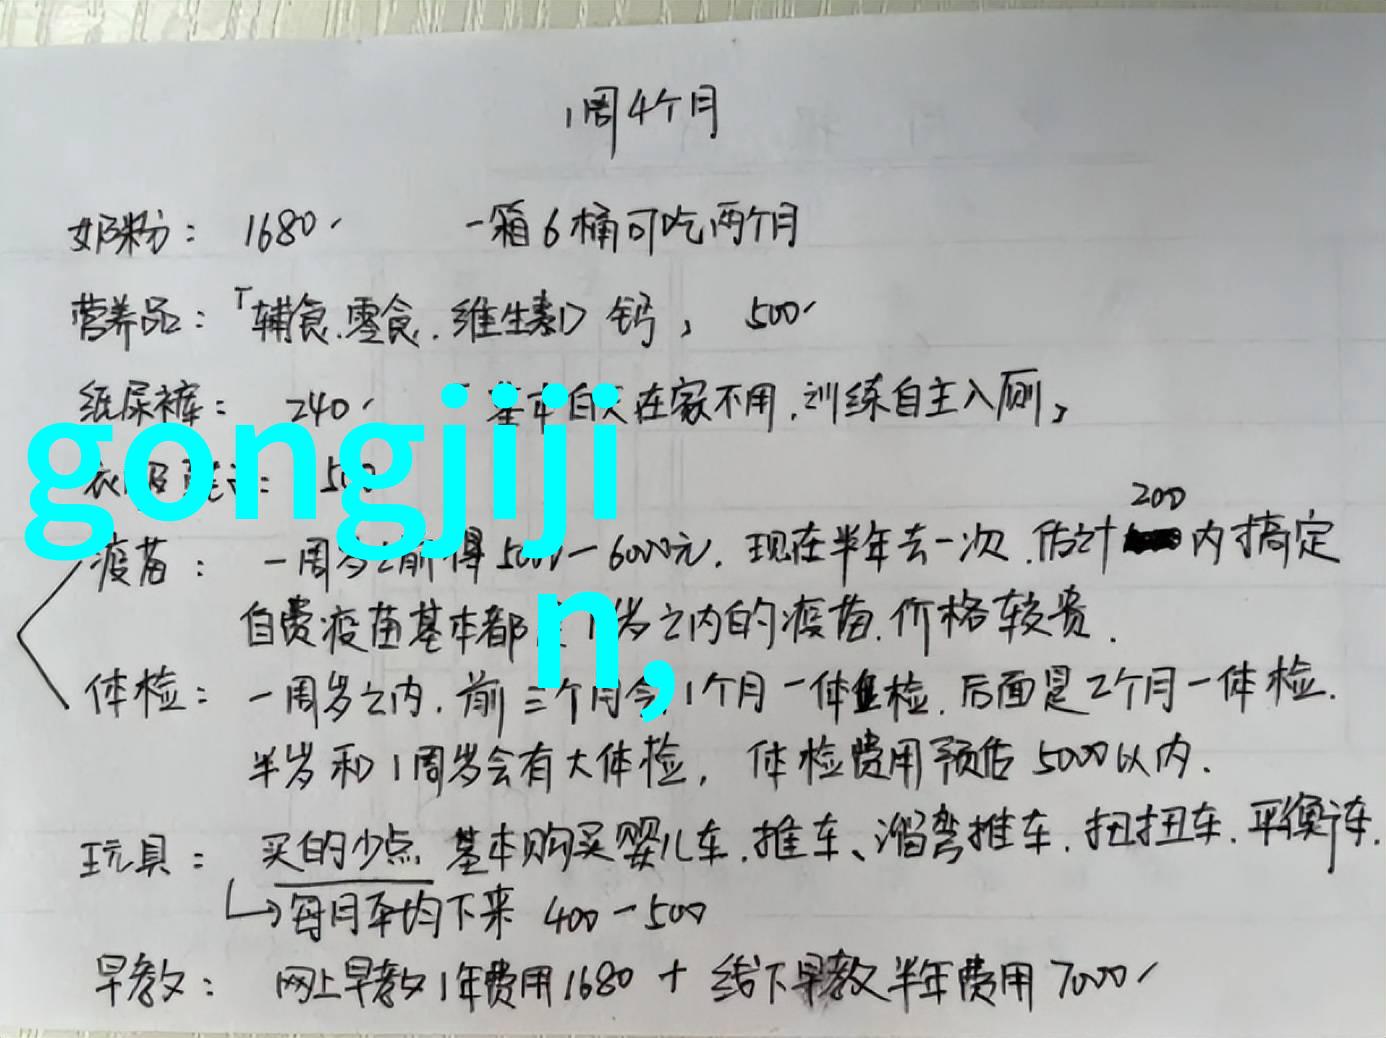 1周4个月
奶粉: 1680 一箱6桶可吃两个月
营养品:「辅食.零食.维生素D 钙」 500
纸尿裤: 240 「基本白天在家不用.训练自主入厕」
gongjiji
衣服 : 500
200
疫苗: 一周岁之前得5000—6000元.现在半年去一次.估计 内搞定
n,
自费疫苗基本都 1岁之内的疫苗.价格较贵.
体检: 一周岁之内.前三个月 1个月一体检.后面是2个月一体检.
半岁和1周岁会有大体检, 体检费用预估5000以内.
玩具: 买的少点 基本购买婴儿车.推车、溜弯推车.扭扭车.平衡车.
→每月平均下来 400—500
早教: 网上早教1年费用1680 + 线下早教半年费用7000